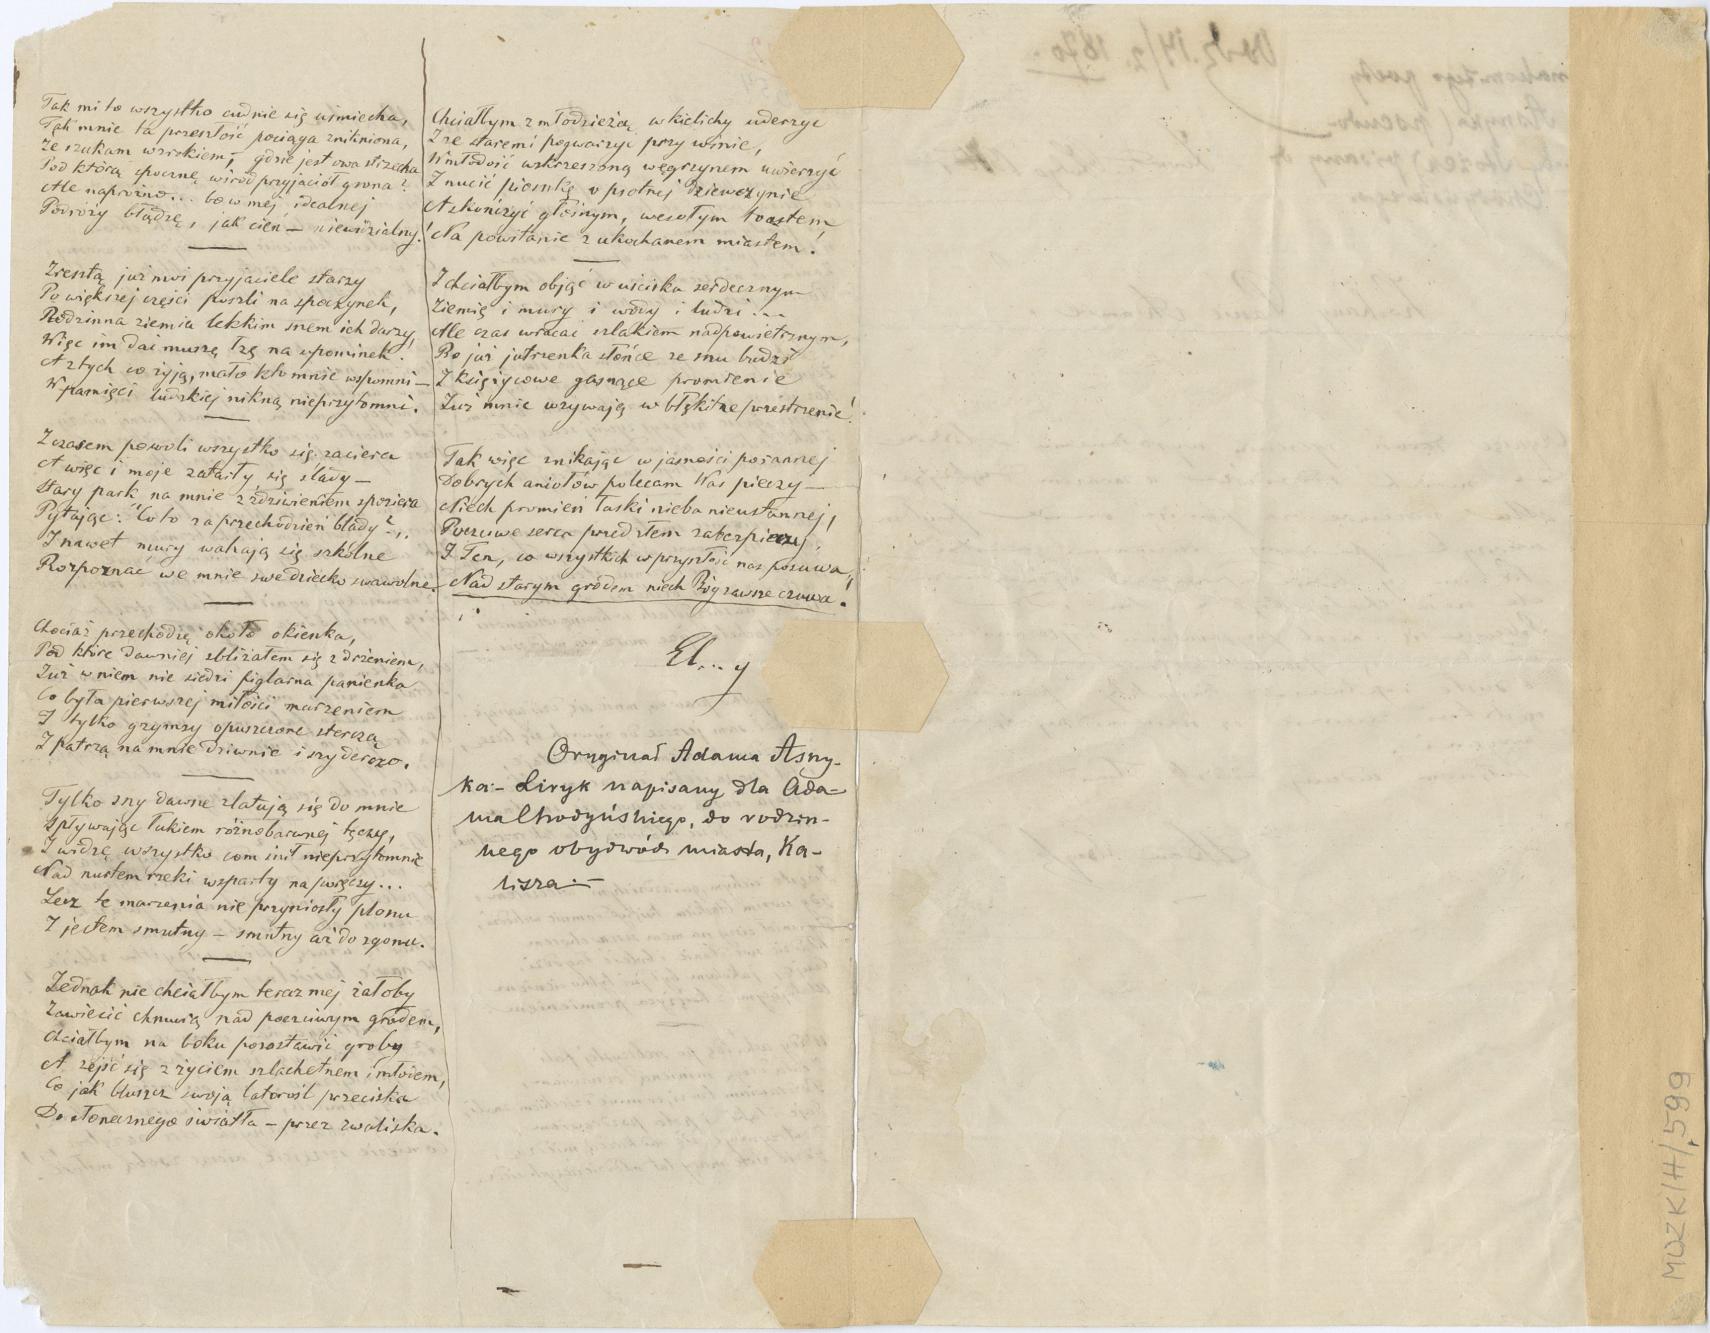 Tak mi to wszystko cudnie się uśmiecha,
Tak mnie ta przeszłość pociąga znikniona,
Że szukam wzrokiem, gdzie jest owa strzecha
Pod którą spocznę wśród przyjaciół grona?
Ale napróżno... bo w mej idealnej
Podróży błądzę, jak cień — niewidzialny!
Zresztą już moi przyjaciele starzy
Po większej części poszli na spoczynek,
Rodzinna ziemia lekkim snem ich darzy,
Więc im dać muszę łzę na upominek.
A z tych co żyją, mało kto mnie wspomni —
W pamięci ludzkiej nikną nieprzytomni.
Z czasem powoli wszystko się zaciera
A więc i moje zatarły się ślady —
Stary park na mnie z zdziwieniem spoziera
Pytając: "Co to za przechodzień blady?...
I nawet mury wahają się szkólne
Rozpoznać we mnie swe dziecko swawolne.
Chociaż przechodzę około okienka,
Pod które dawniej zbliżałem się z drżeniem,
Już w niem nie siedzi figlarna panienka
Co była pierwszej miłości marzeniem
I tylko gzymsy opuszczone sterczą
I patrzą na mnie dziwnie i szyderczo.
Tylko sny dawne zlatują się do mnie
Spływając łukiem różnobarwnej tęczy,
I widzę wszystko com śnił nieprzytomnie
Nad nurtem rzeki wsparty na poręczy...
Lecz te marzenia nie przyniosły plonu
I jestem smutny — smutny aż do zgonu.
Jednak nie chciałbym teraz mej żałoby
Zawiesić chmurą nad poczciwym grodem,
Chciałbym na boku pozostawić groby
A zejść się z życiem szlachetnem i młodem,
Co jak bluszcz swoją latorośl przeciska
Do słonecznego światła — przez zwaliska.
Chciałbym z młodzieżą w kielichy uderzyć
I ze staremi pogwarzyć przy winie,
W młodość wskrzeszoną węgrzynem uwierzyć
I nucić piosnkę o psotnej dziewczynie
A skończyć głośnym, wesołym toastem
Na powitanie z ukochanem miastem!
I chciałbym objąć w uścisku serdecznym
Ziemię i mury i wody i ludzi...
Ale czas wracać szlakiem nadpowietrznym,
Bo już jutrzenka słońce ze snu budzi
I księżycowe gasnące promienie
Już mnie wzywają w błękitne przestrzenie!
Tak więc znikając w jasności porannej
Dobrych aniołów polecam Was pieczy —
Niech promień łaski nieba nieustannej,
Poczciwe serca przed złem zabezpieczy,
I Ten, co wszystkich w przyszłość nas posuwa,
Nad starym grodem niech Bóg zawsze czuwa!
El...y
Oryginał Adama Asny-
ka: — Liryk napisany dla Ada-
ma Chodyńskiego, do rodzin-
nego obydwóch miasta, Ka-
lisza. —
MOZK/H/599